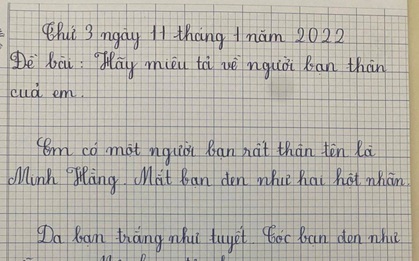 Thứ 3 ngày 11 tháng 1 năm 2022
Đề bài: Hãy miêu tả về người bạn thân
cuả em.
Em có một người bạn rất thân tên là
Minh Hằng. Mắt bạn đen như hai hột nhãn.
Da bạn trắng như tuyết. Tóc bạn đen như